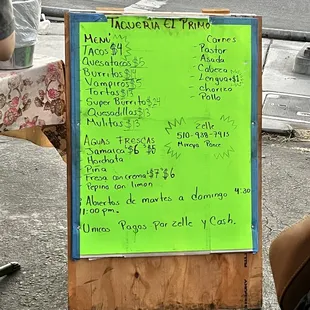 TAQUERIA EL PRIMO
MENU
Tacos $4
Quesatacos $5
Burritos $14
Vampiros
Tortas $13
Super Burrito $14
Quesadillas $13
Mulitas $13
Carnes
Pastor
Asada
Cabeza
Lengua +$1
Chorizo
Pollo
Zelle
510-938-7913
Mireya Ponce
AGUAS FRESCAS
Jamaica $6
Horchata
Piña
Fresa con crema $7
Pepino con limon
¡Abiertos de martes a domingo 4:30
11:00 pm.
Unicos Pagos por zelle y Cash.